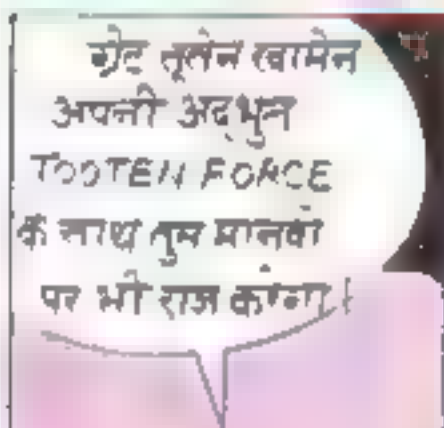 ग्रेट तूतेन खामेन
अपनी अद्भुत
TOOTEN FORCE
के साथ तुम मानवों
पर भी राज करेगा!